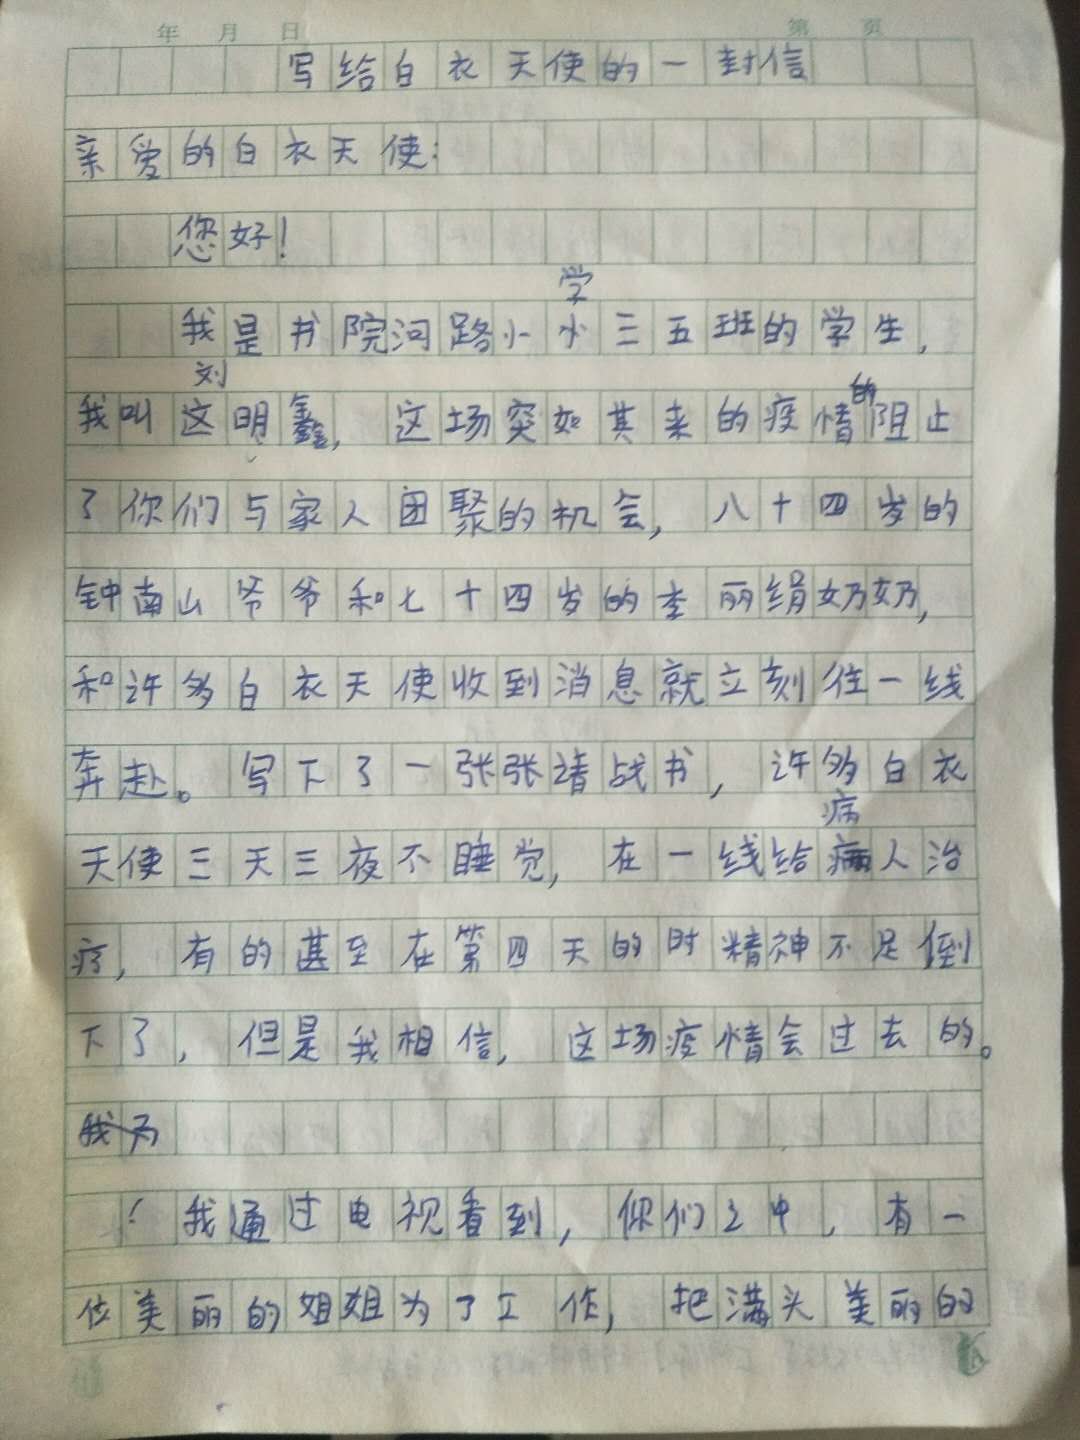 年 月 日 第 页
写给白衣天使的一封信
亲爱的白衣天使:
您好!
学
我是书院河路小小三五班的学生,
刘
我叫这明鑫,这场突如其来的疫情的阻止
了你们与家人团聚的机会,八十四岁的
钟南山爷爷和七十四岁的李丽绢奶奶,
和许多白衣天使收到消息就立刻往一线
奔赴。写下了一张张请战书,许多白衣
病
天使三天三夜不睡觉,在一线给病人治
疗,有的甚至在第四天的时精神不足倒
下了,但是我相信,这场疫情会过去的。
我为
我通过电视看到,你们之中,有一
位美丽的姐姐为了工作,把满头美丽的